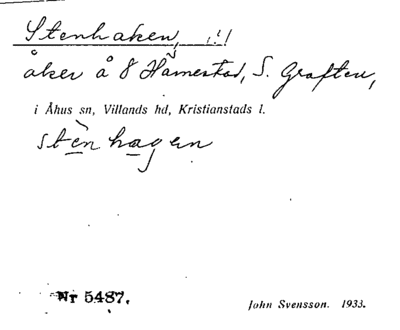 Stenhaken, !
åker å 8 Hamestad, S. Graften,
i Åhus sn, Villands hd, Kristianstads l.
stènhagen
Nr 5487.
John Svensson. 1933.